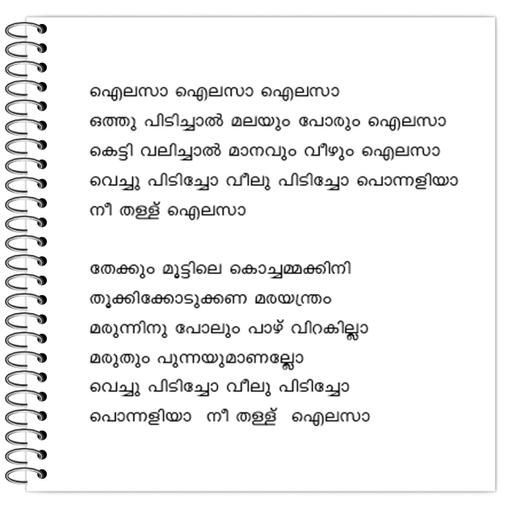 ഐലസാ ഐലസാ ഐലസാ
ഒത്തു പിടിച്ചാൽ മലയും പോരും ഐലസാ
കെട്ടി വലിച്ചാൽ മാനവും വീഴും ഐലസാ
വെച്ചു പിടിച്ചോ വീലു പിടിച്ചോ പൊന്നളിയാ
നീ തള്ള് ഐലസാ
തേക്കും മൂട്ടിലെ കൊച്ചമ്മക്കിനി
തൂക്കിക്കോടുക്കണ മരയന്ത്രം
മരുന്നിനു പോലും പാഴ് വിറകില്ലാ
മരുതും പുന്നയുമാണല്ലോ
വെച്ചു പിടിച്ചോ വീലു പിടിച്ചോ
പൊന്നളിയാ നീ തള്ള് ഐലസാ